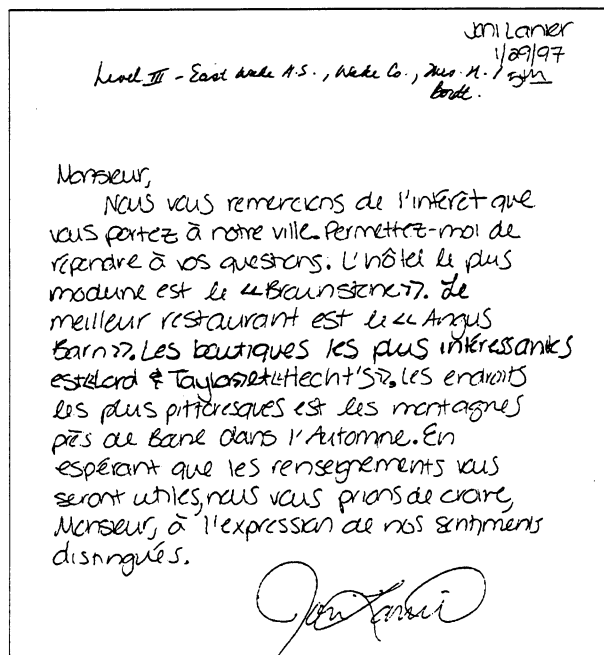 Joni Lanier
1/29/97
Level III - East Wake H.S., Wake Co., Mrs. H.
Monsieur,
Nous vous remercions de l'intérêt que
vous portez à notre ville. Permettez-moi de
répondre à vos questions. L'hôtel le plus
moderne est le «Braunstone». Le
meilleur restaurant est le «Angus
Barn». Les boutiques les plus intéressantes
est «Lord & Taylor» et «Hecht's». Les endroits
les plus pittoresques est les montagnes
près de Bane dans l'Automne. En
espérant que les renseignements vous
seront utiles, nous vous prions de croire,
Monsieur, à l'expression de nos sentiments
distingués.
Joni Lanier